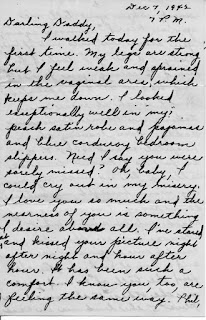 Dec 7, 1942
7 P.M.
Darling Daddy,
I walked today for the
first time. My legs are strong
but I feel weak and sprained
in the vaginal area, which
keeps me down. I looked
exceptionally well in my
peach satin robe and pajamas
and blue corduroy bedroom
slippers. Need I say you were
sorely missed? Oh baby, I
could cry out in my misery.
I love you so much and the
nearness of you is something
I desire above all. I've stared
and kissed your picture night
after night and hour after
hour. It has been such a
comfort. I know you, too, are
feeling the same way. Phil,